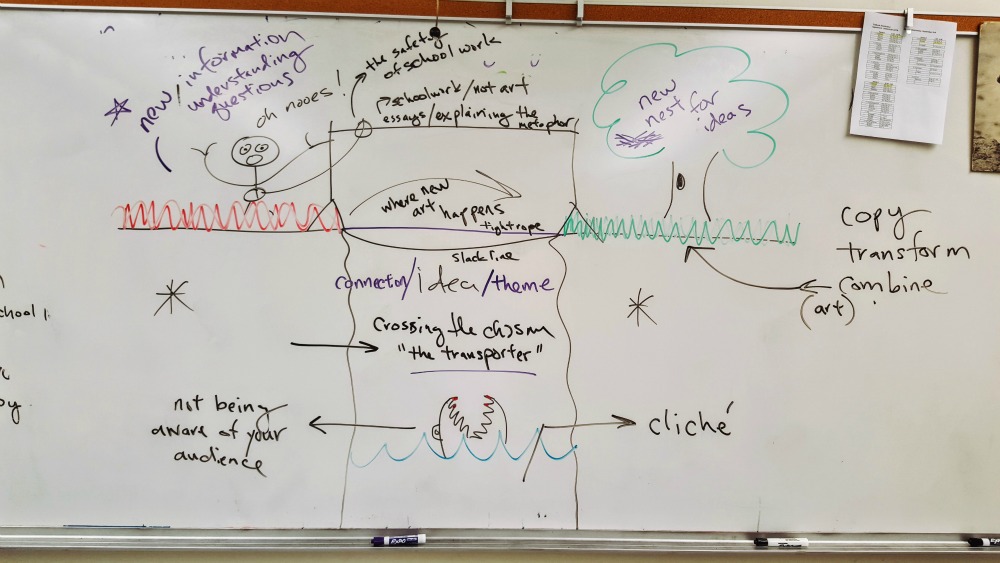 new/information
understanding
questions
oh nooes!
the safety
of school work
schoolwork/not art
essays/explaining the
metaphor
new
nest for
ideas
where new
art happens
tightrope
slackline
connection/idea/theme
crossing the chasm
"the transporter"
copy
transform
combine
(art)
not being
aware of your
audience
cliché
chool
EXPO